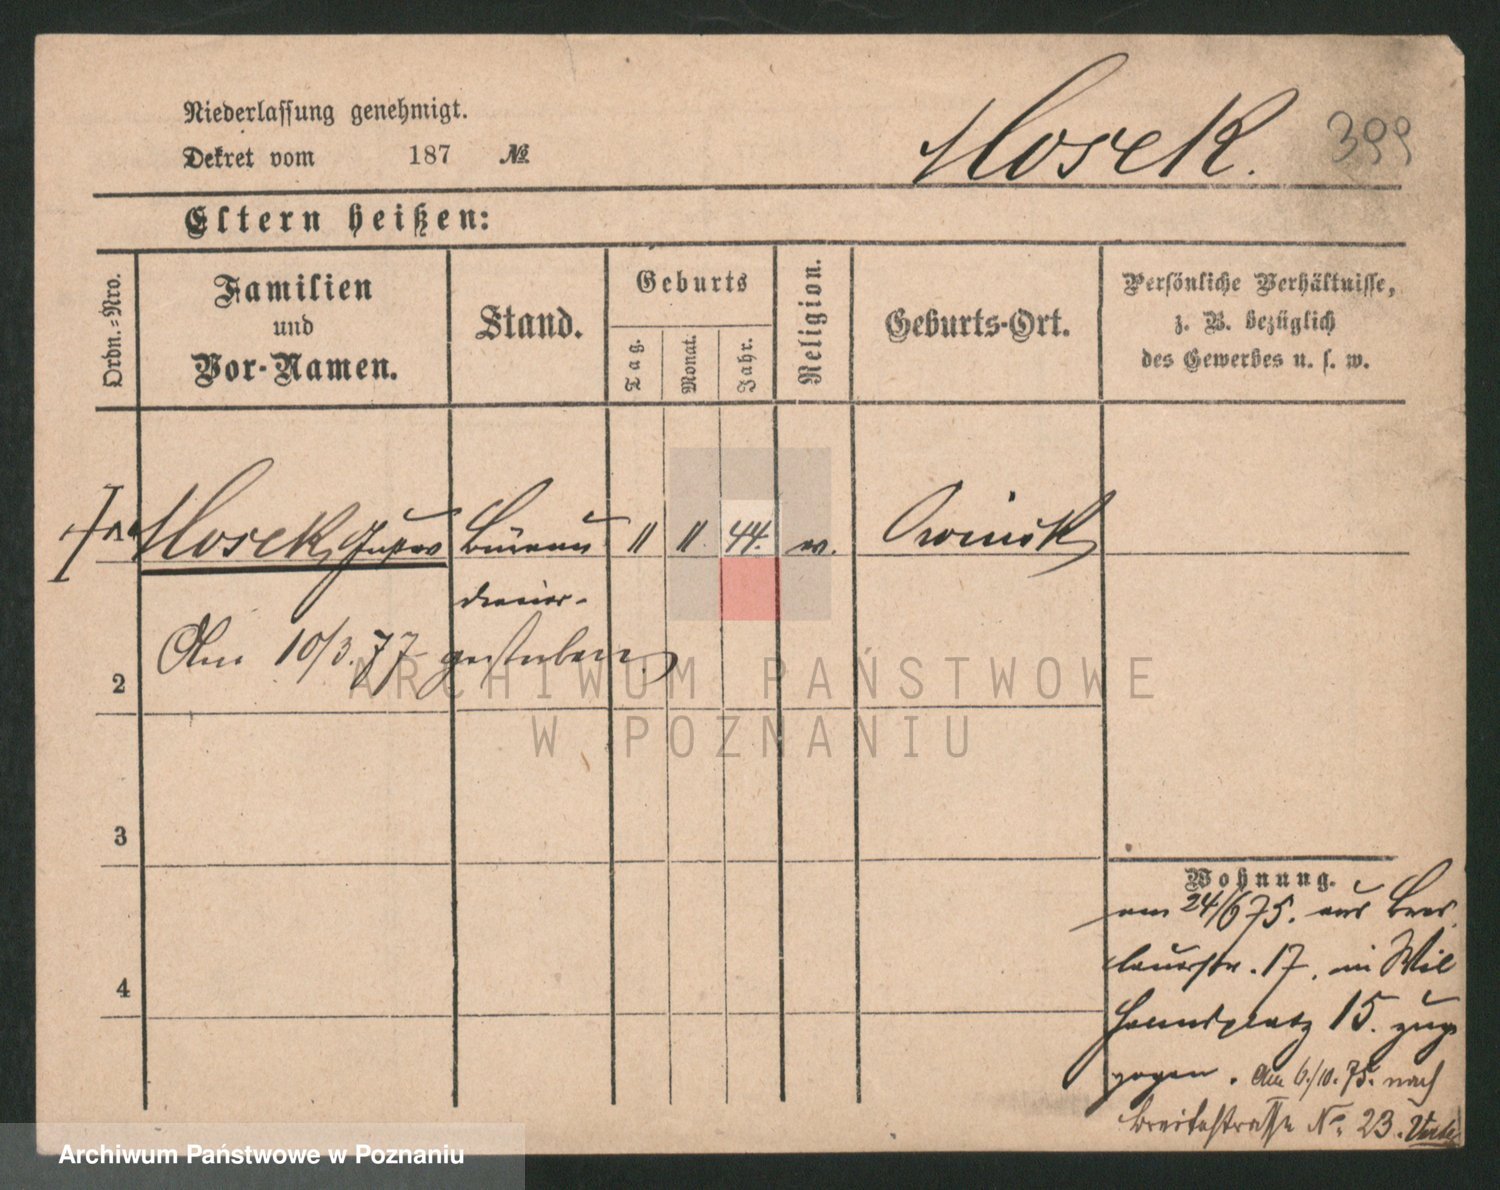 Niederlassung genehmigt.
Dekret vom 187 №
Mosek.
399
Eltern heißen:
Ordn.=Nro.
Familien
und
Vor-Namen.
Stand.
Geburts
Tag.
Monat.
Jahr.
Religion.
Geburts-Ort.
Persönliche Verhältnisse,
z. B. bezüglich
des Gewerbes u. s. w.
Mosek, Bureau 11 11. 44.
diener.
Am 10/3. 77 gestorben.
2
3
4
Wohnung.
am 24/6 75. aus Bres
lauerstr. 17. in Wil
helmsplatz 15. zuge
zogen. Am 6./10. 75. nach
Breitestrasse No. 23.
ARCHIWUM PAŃSTWOWE
W POZNANIU
Archiwum Państwowe w Poznaniu